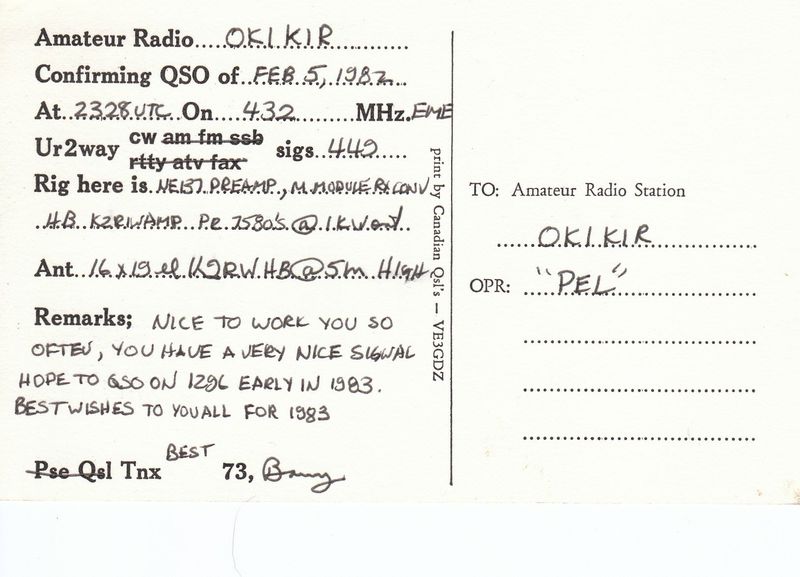 Amateur Radio.....OK1KIR..............
Confirming QSO of..FEB 5, 1982..
At..2328 UTC On....432........MHz. EME
Ur2way cw am fm ssb sigs..449.....
rtty atv fax
Rig here is.NE137 PREAMP., M.MODULE RX CONV
.HB K2RIW AMP. PR. 7580's @ 1 KW out..
Ant..16 x 19 el K2RIW HB @ 5m HIGH
Remarks; NICE TO WORK YOU SO
OFTEN, YOU HAVE A VERY NICE SIGNAL
HOPE TO QSO ON 1296 EARLY IN 1983.
BEST WISHES TO YOU ALL FOR 1983
Pse Qsl Tnx BEST 73, Barry
print by Canadian Qsl's — VE3GDZ
TO: Amateur Radio Station
.....OK1KIR...............
OPR: ..."PEL"...................